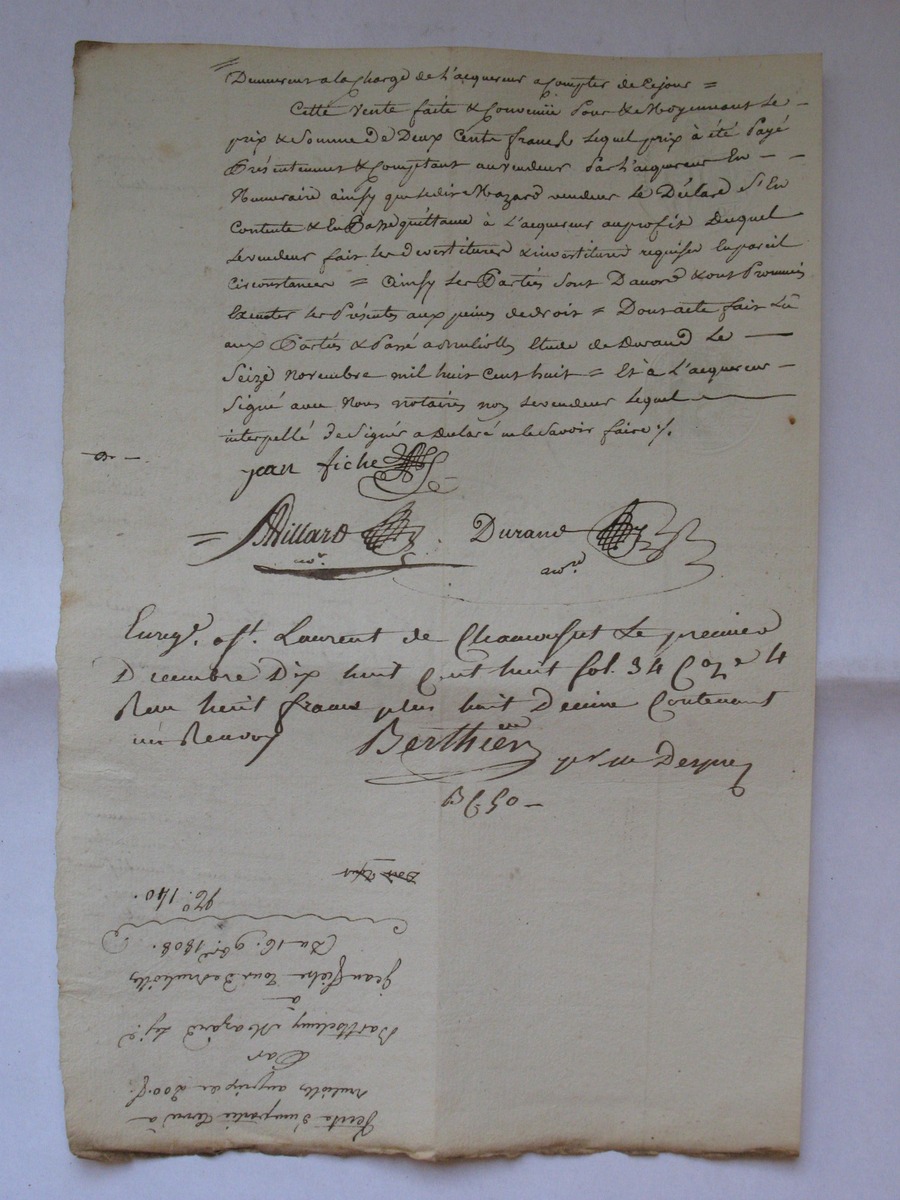 Demeureront a la Charge de L'acquereur a Compter de Cejour =
Cette Vente faite & Convenüe Pour & Moyennant Le -
prix & Somme de Deux Cents francs Lequel prix à été Payé
Présentement & Comptant au vendeur Par L'acquereur En - -
Numeraire ainsy que Ledit Mazard vendeur Le Déclare S'En
Contente & En Passe quittance à L'acquereur au profit Duquel
Le vendeur fait les devestitures & investitures requises En pareil
Circonstances = Ainsy Les Parties Sont D'accord & ont Promis
Executer les Présentes aux peines de droit = Dont acte fait Lû
aux Parties & Passé a Etude de Durand Le -
Seize Novembre mil huit Cent huit = Et à L'acquereur -
Signé avec Nous notaires non Le vendeur Lequel
interpellé de Signer a Declaré ne le Savoir faire /.
jean fiche
= Billard Durand
nore. nore
Enregé. à St. Laurent de Chamousset Le premier
Decembre Dix huit Cent huit fol. 34 Coze 4
Reçu huit francs plus huit Decime Contenant
un Renvoy Berthier
Vente d'une partie terre à
au prix de 200 f.
Par
Barthelemy Mazard
à
Jean fiche
Du 16. 9bre 1808.
No. 140.